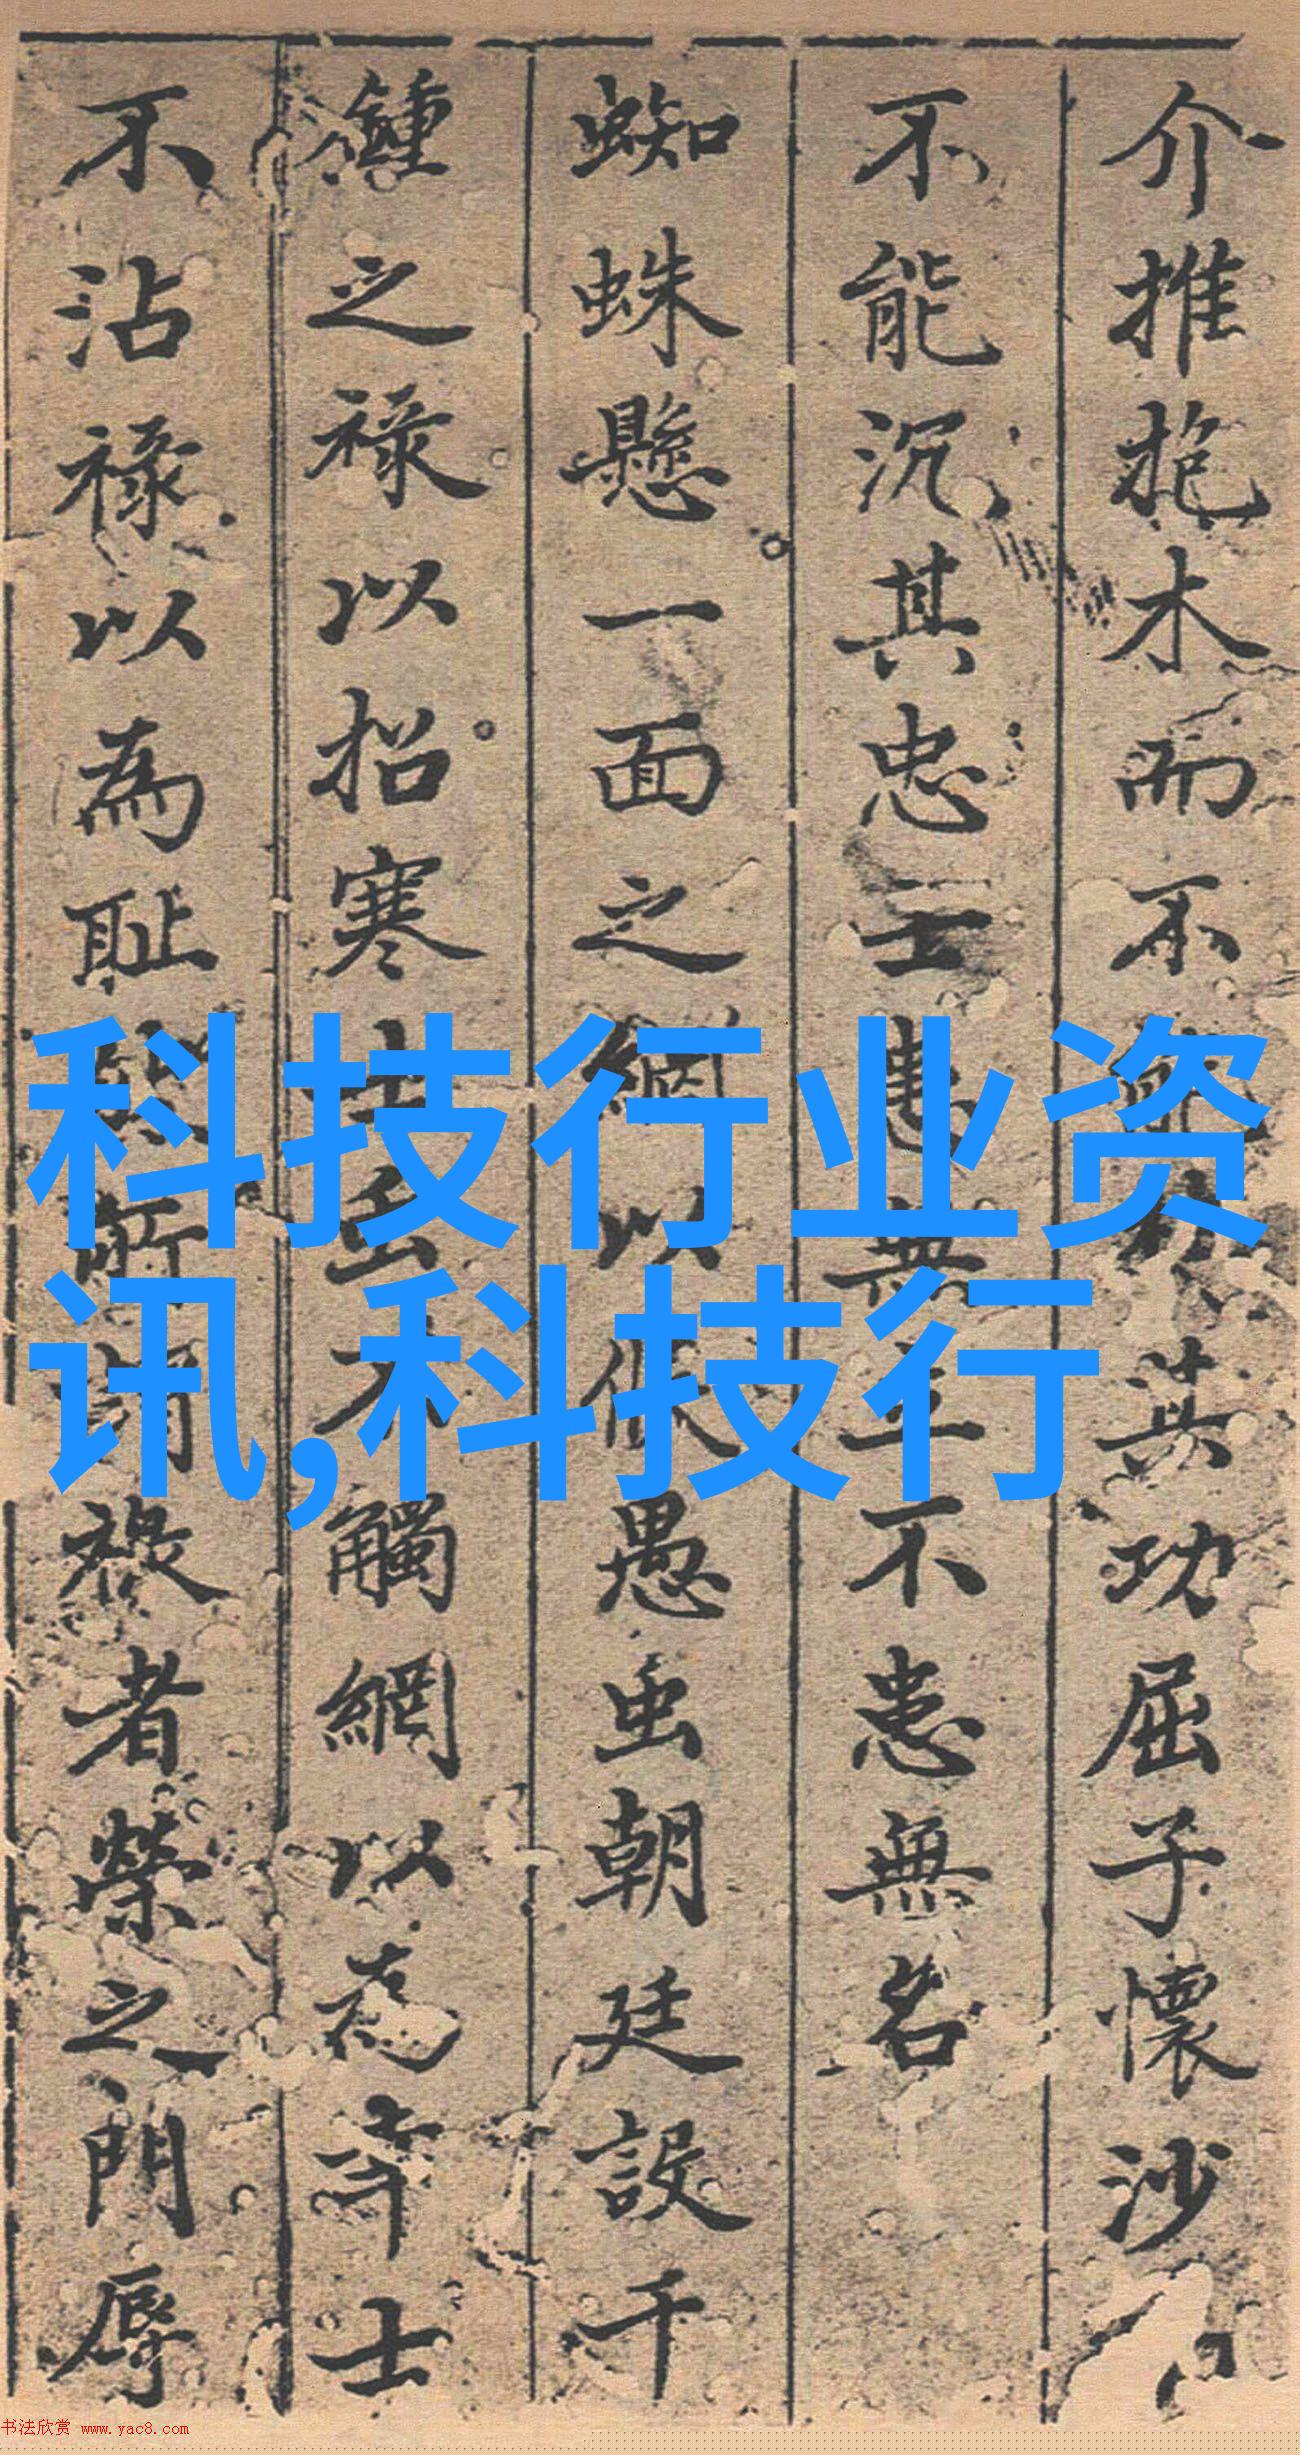 介推抱木而不
其功屈子懷沙
不能沉其忠士患無
不患無名
蜘蛛懸一面之網以
愚虫朝廷設千
鍾之祿以招寒士
觸網以為
士
不沾祿以為耻
祿者榮之門辱
科技行业资
讯,科技行
书法欣赏 www.yac8.com